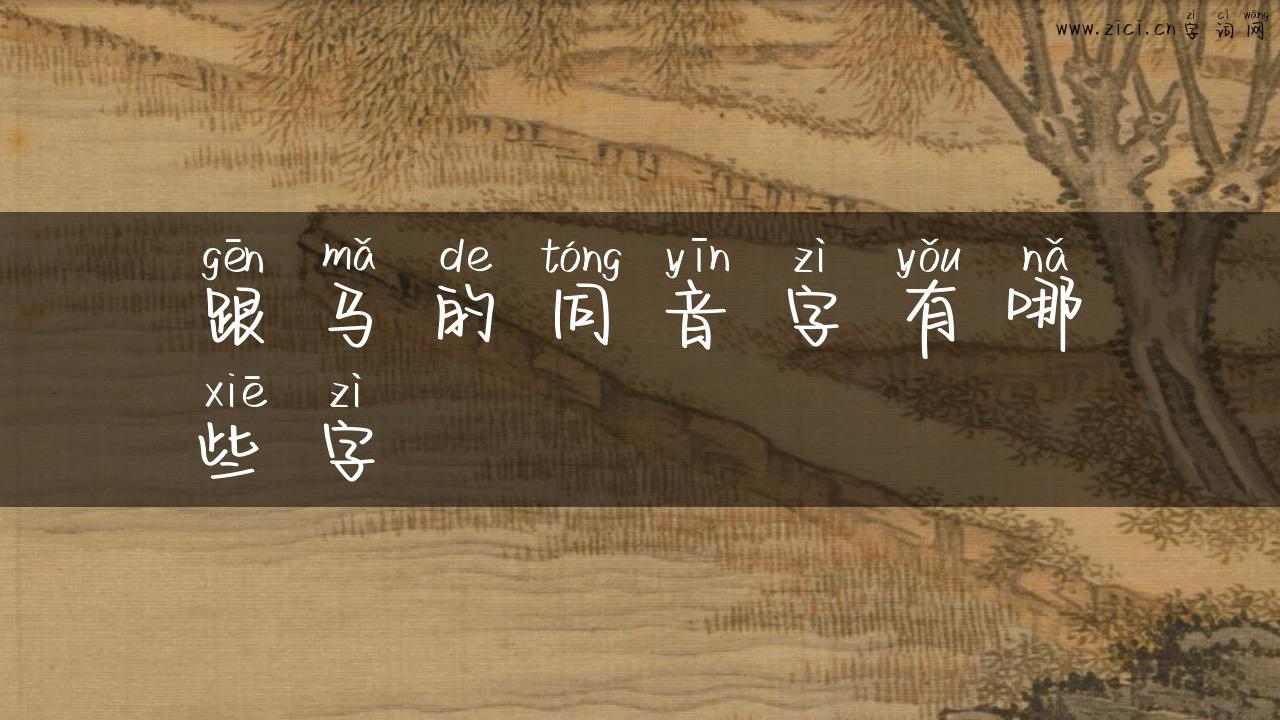 zì cí wǎng
www.zici.cn 字 词 网
gēn mǎ de tóng yīn zì yǒu nǎ
跟 马 的 同 音 字 有 哪
xiē zì
些 字